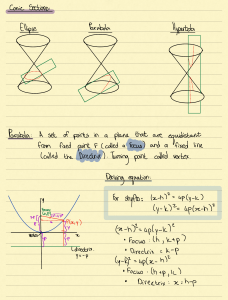 Conic Sections
Ellipse Parabola Hyperbola
Parabola: A set of points in a plane that are equidistant
from fixed point F (called a focus) and a fixed line
(called the directrix). Turning point called vertex
Deriving equation:
For shifts: (x-h)² = 4p(y-k)
(y-k)² = 4p(x-h)
(x-h)² = 4p(y-k)
• Focus: (h, k+p)
• Directrix = k-p
(y-k)² = 4p(x-h)
• Focus: (h+p, k)
• Directrix: x = h-p
directrix
y = -p